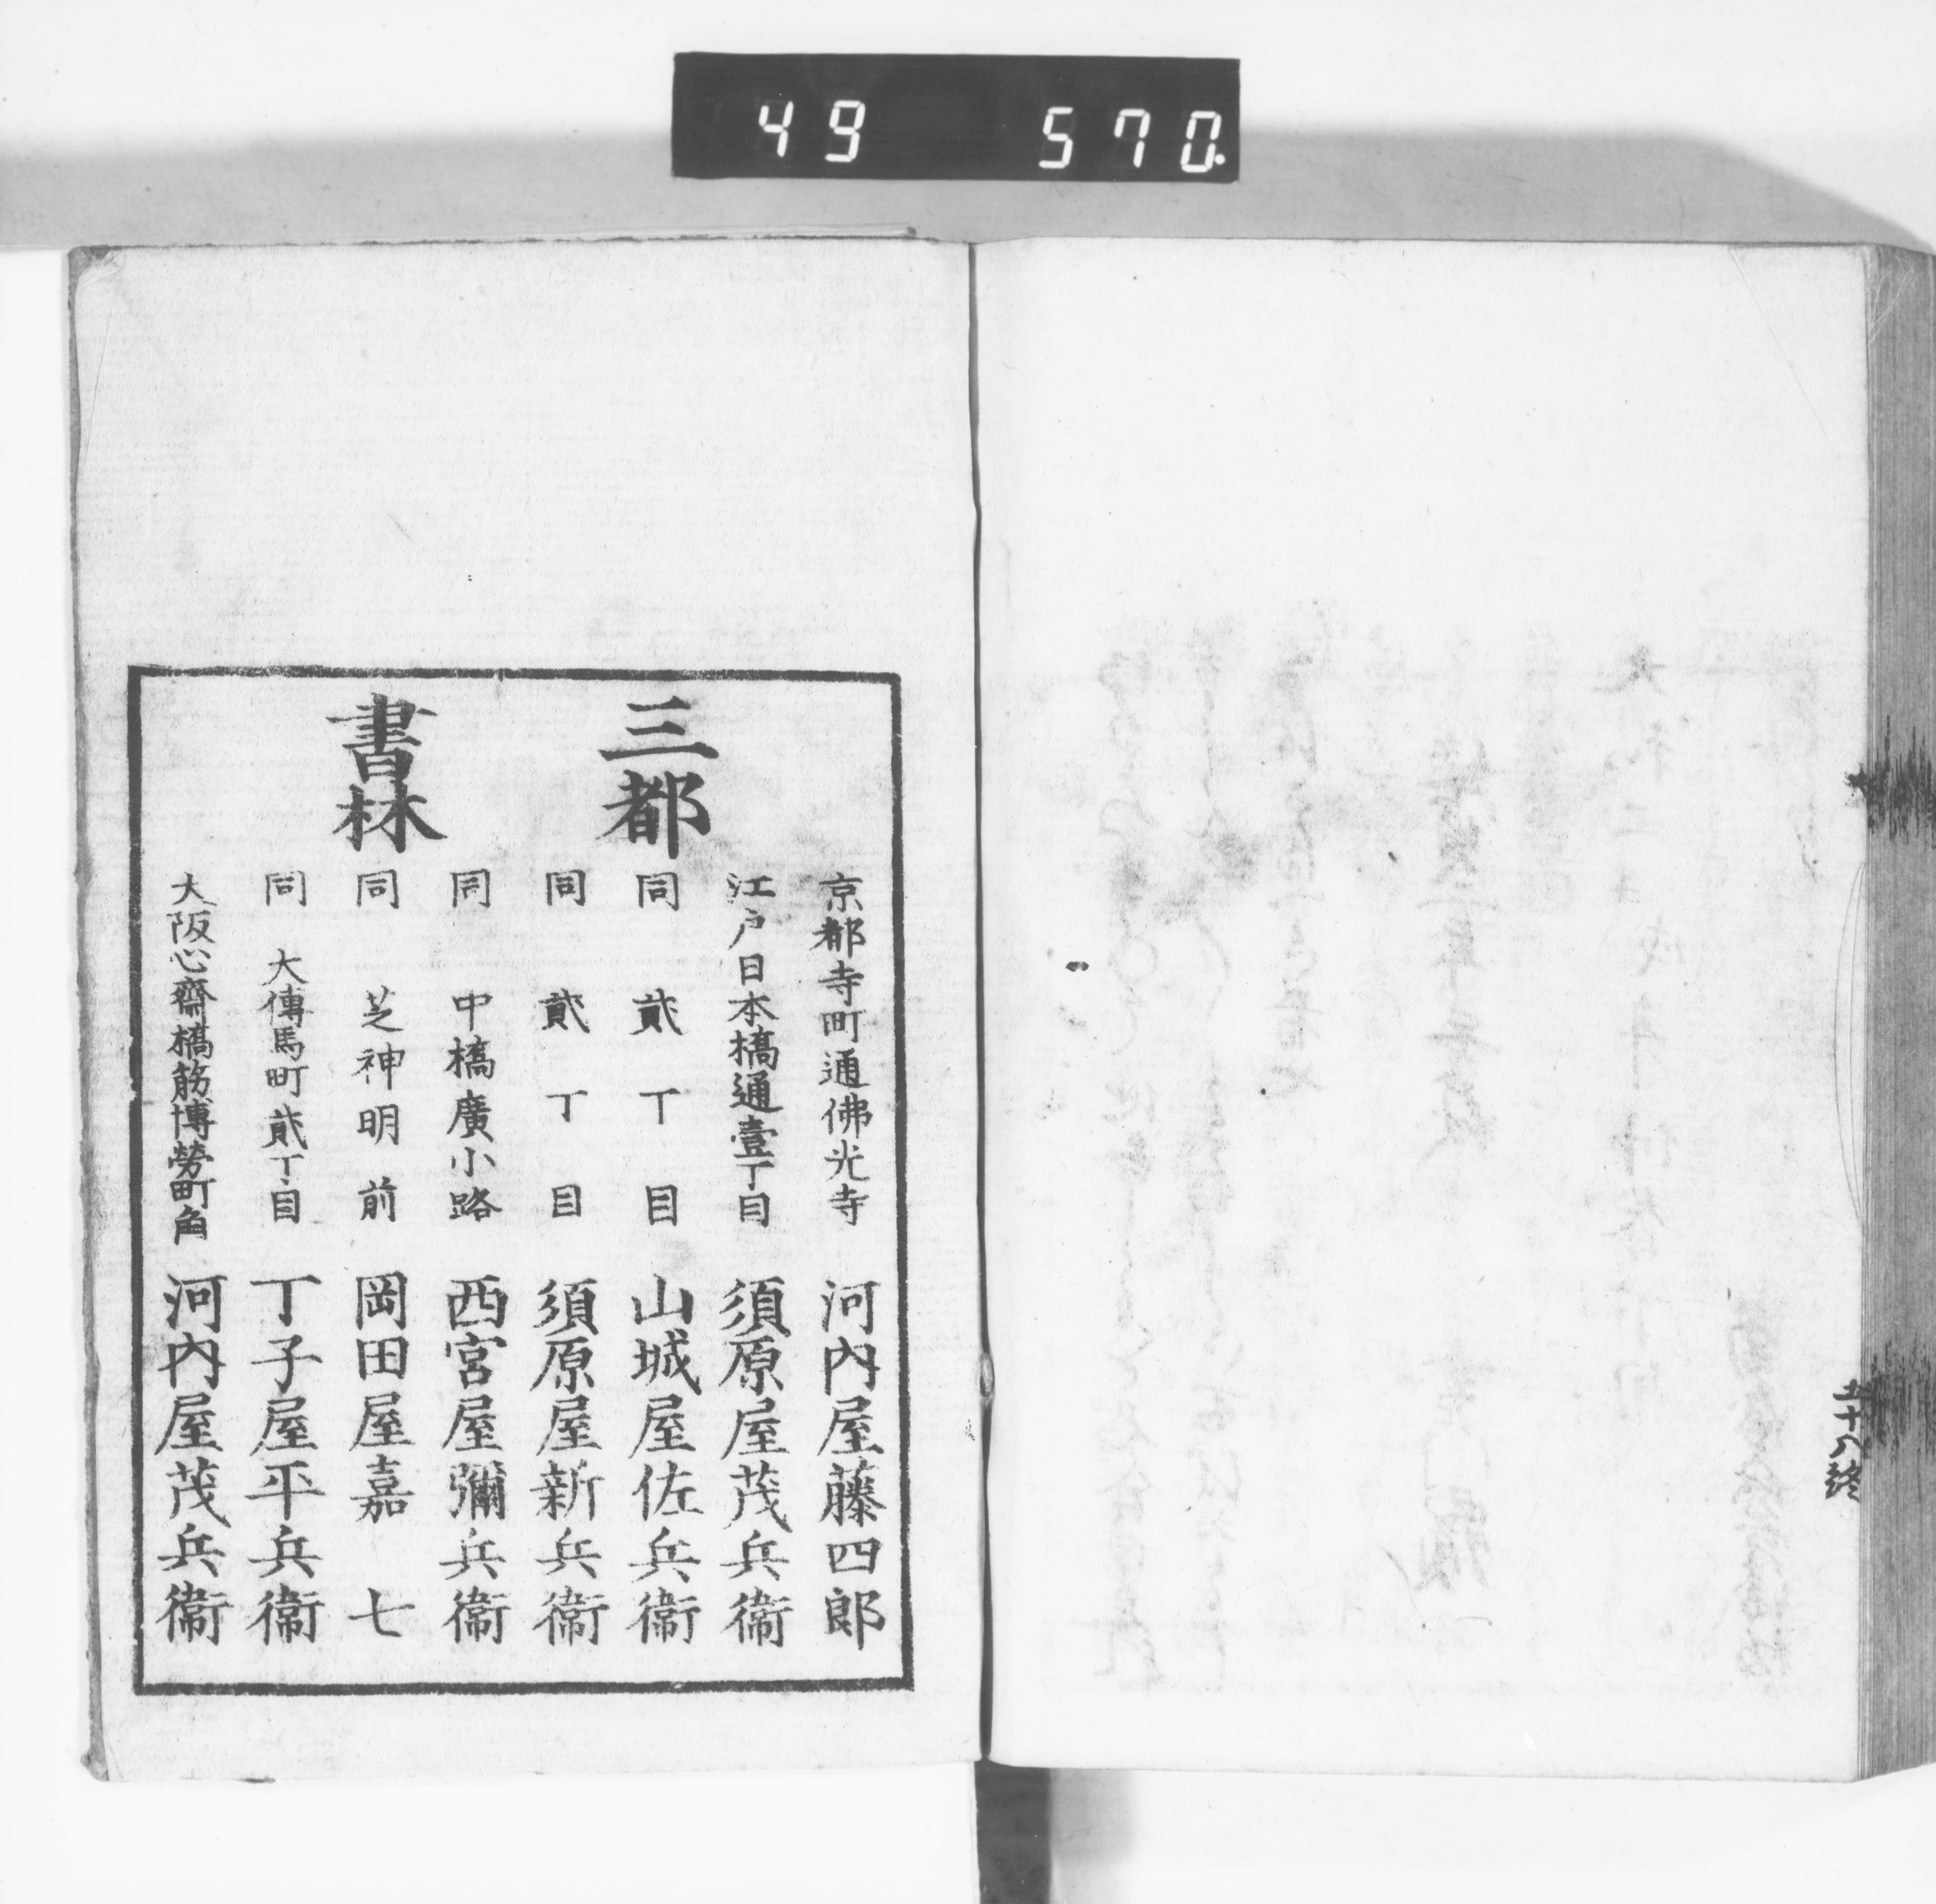 49 570.
五十八終
三都
書林
京都寺町通佛光寺 河內屋藤四郎
江戸日本橋通壹丁目 須原屋茂兵衞
同 貮丁目 山城屋佐兵衞
同 貮丁目 須原屋新兵衞
同 中橋廣小路 西宮屋彌兵衞
同 芝神明前 岡田屋嘉七
同 大傳馬町貮丁目 丁子屋平兵衞
大阪心齋橋筋博勞町角 河內屋茂兵衞